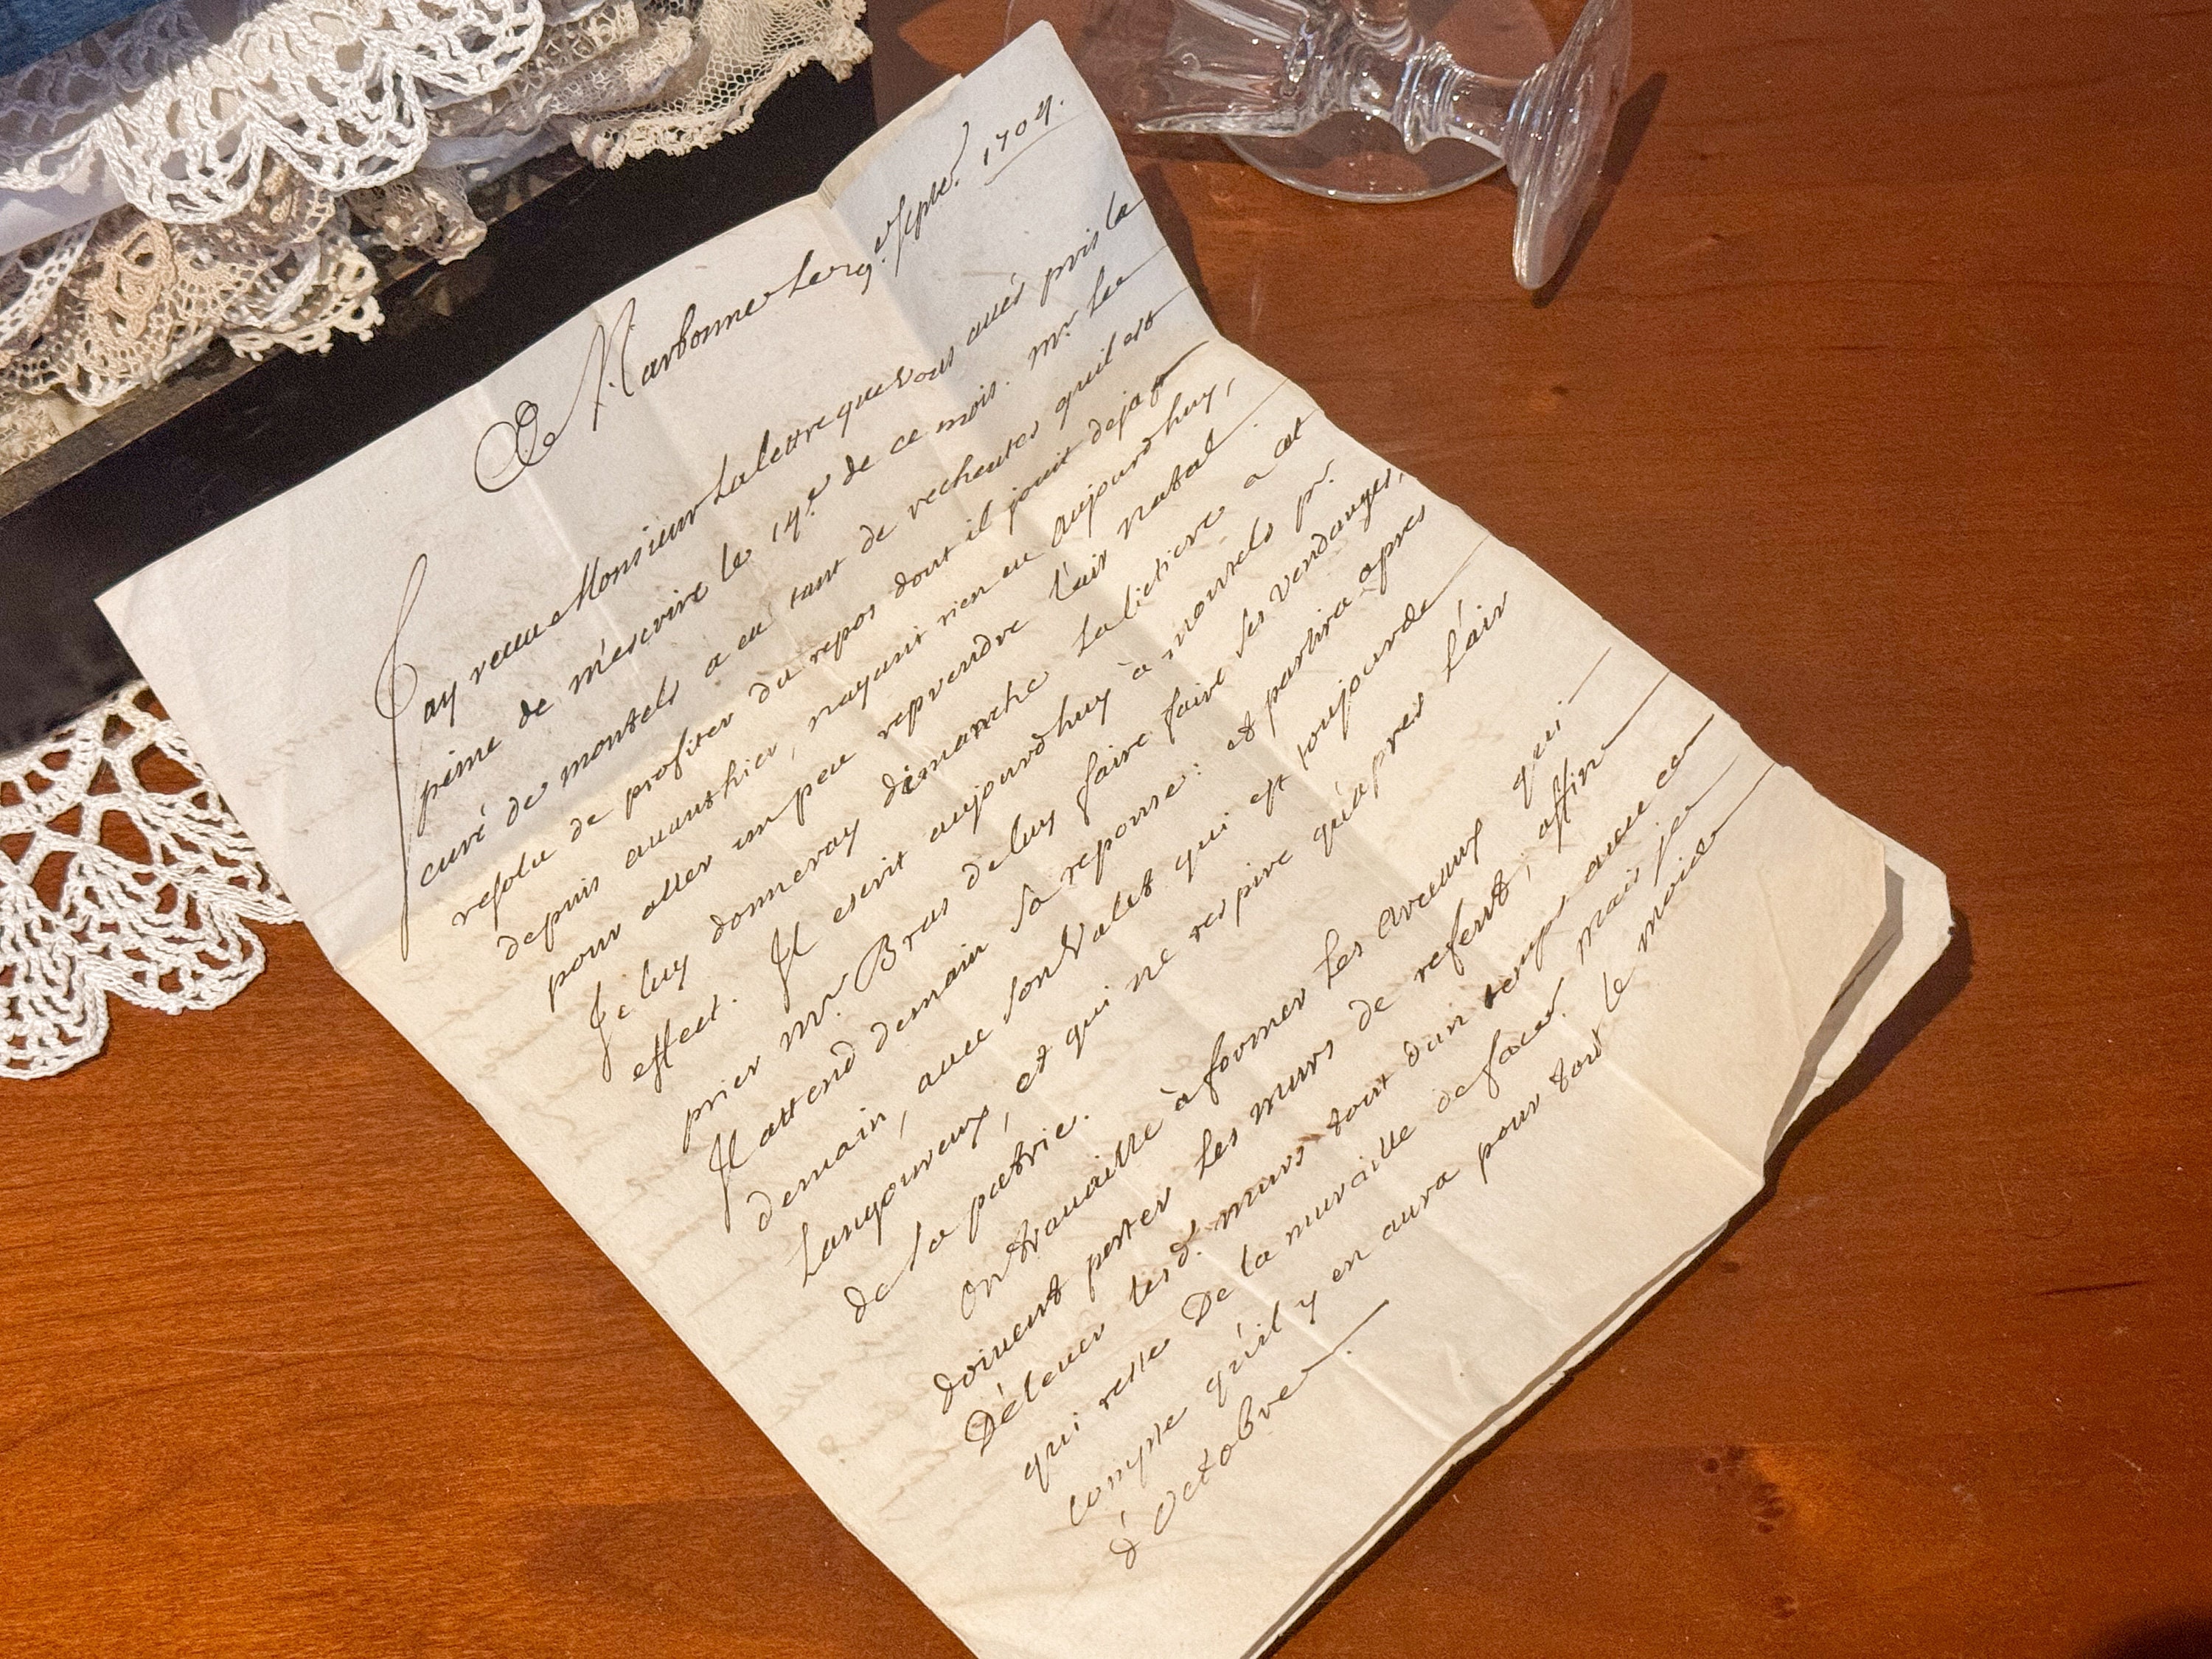 De Narbonne Le 19.e Septre. 1704.
J'ay receu Monsieur La lettre que Vous avés pris la
peine de m'escrire le 14.e de ce mois. mr. Le
curé de montels a eu tant de recheutes qu'il est
resolu de profiter du repos dont il jouit deja
depuis avanthier, n'ayant rien eu aujourdhuy,
pour aller un peu reprendre l'air natal.
Je luy donneray dimanche La lictiere a cet
effect. Il escrit aujourdhuy à montels pr.
prier mr. Bras de luy faire faire ses vendanges,
Il attend demain sa reponse: et partira apres
demain, avec son Valet qui est toujours
Langoureux, et qui ne respire qu'apres L'air
de la patrie.
On travaille à former Les arceaux qui
doivent porter Les murs de refent, affin
D'elever lesd. murs tout d'un temps avec ce
qui reste De la muraille de face. mais je
compte qu'il y en aura pour tout le mois
d'octobre.